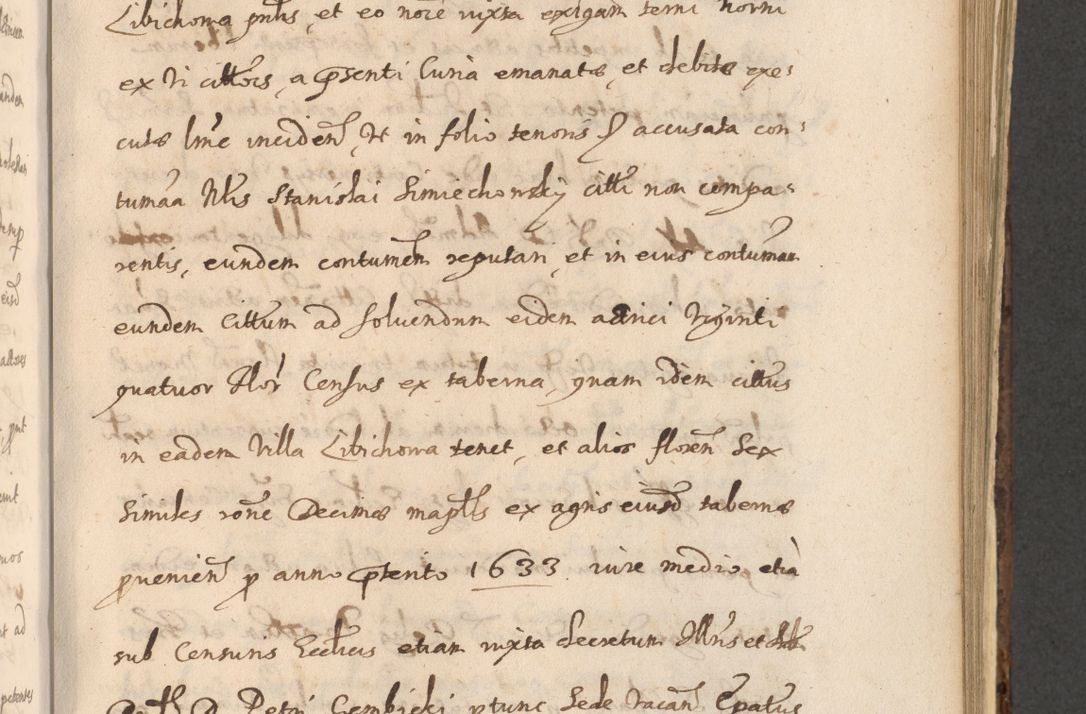 Libichowa pntis, et eo nore iuxta exigam terni norni
ex Vi cittois, a pñsenti Curia emanatæ, et debitæ exe,
cutæ lrne inciden, et in folio tenoris p accusata con,
tuma Nlis Stanislai Simiechowskÿ citti non compa,
rentis, eundem contumem reputari, et in eius contumam
eundem Cittum ad soluendum eidem actrici Viginti
quatuor Flor Census ex taberna, quam idem cittus
in eadem Villa Libichowa tenet, et alios floren Sex
Similes rone Decimæ maplis ex agris eiusd tabernæ
prouenien p anno præterito 1633. iure medio etia
sub Censuris Ecclicis etiam iuxta decretum Illris et
D. Petri Gembicki ptunc Sede Vacan Epatus